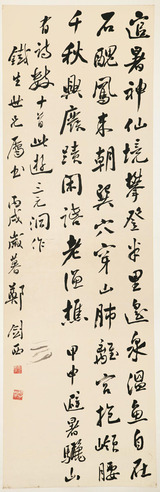 宜暑神仙境攀登半里遥泉温鱼自在
石醜鳳来朝巽穴穿山肺離宫抱嶽腰
千秋興廢蹟閑話老漁樵 甲申避暑驪山
有詩数十首此遊三元洞作
鐵生世兄屬书 丙戌歲暮鄭剑西